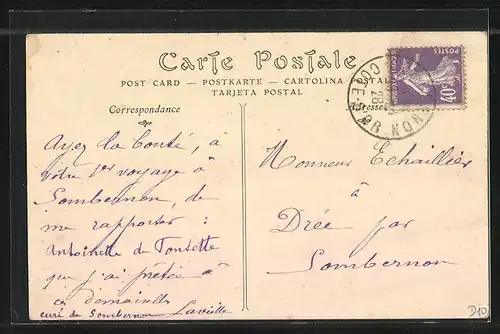 Carte Postale
POST CARD — POSTKARTE — CARTOLINA POSTALE
TARJETA POSTAL
Correspondance
Adresse
POSTES
40c
28
COTE-D'OR
Ayez la bonté, à
votre 1er voyage à
Sombernon, de
me rapporter :
Antoinette de
que j'ai prêtée à
ces demoiselles
curé de Sombernon
Monsieur Echaillier
à
Drée par
Sombernon
D10